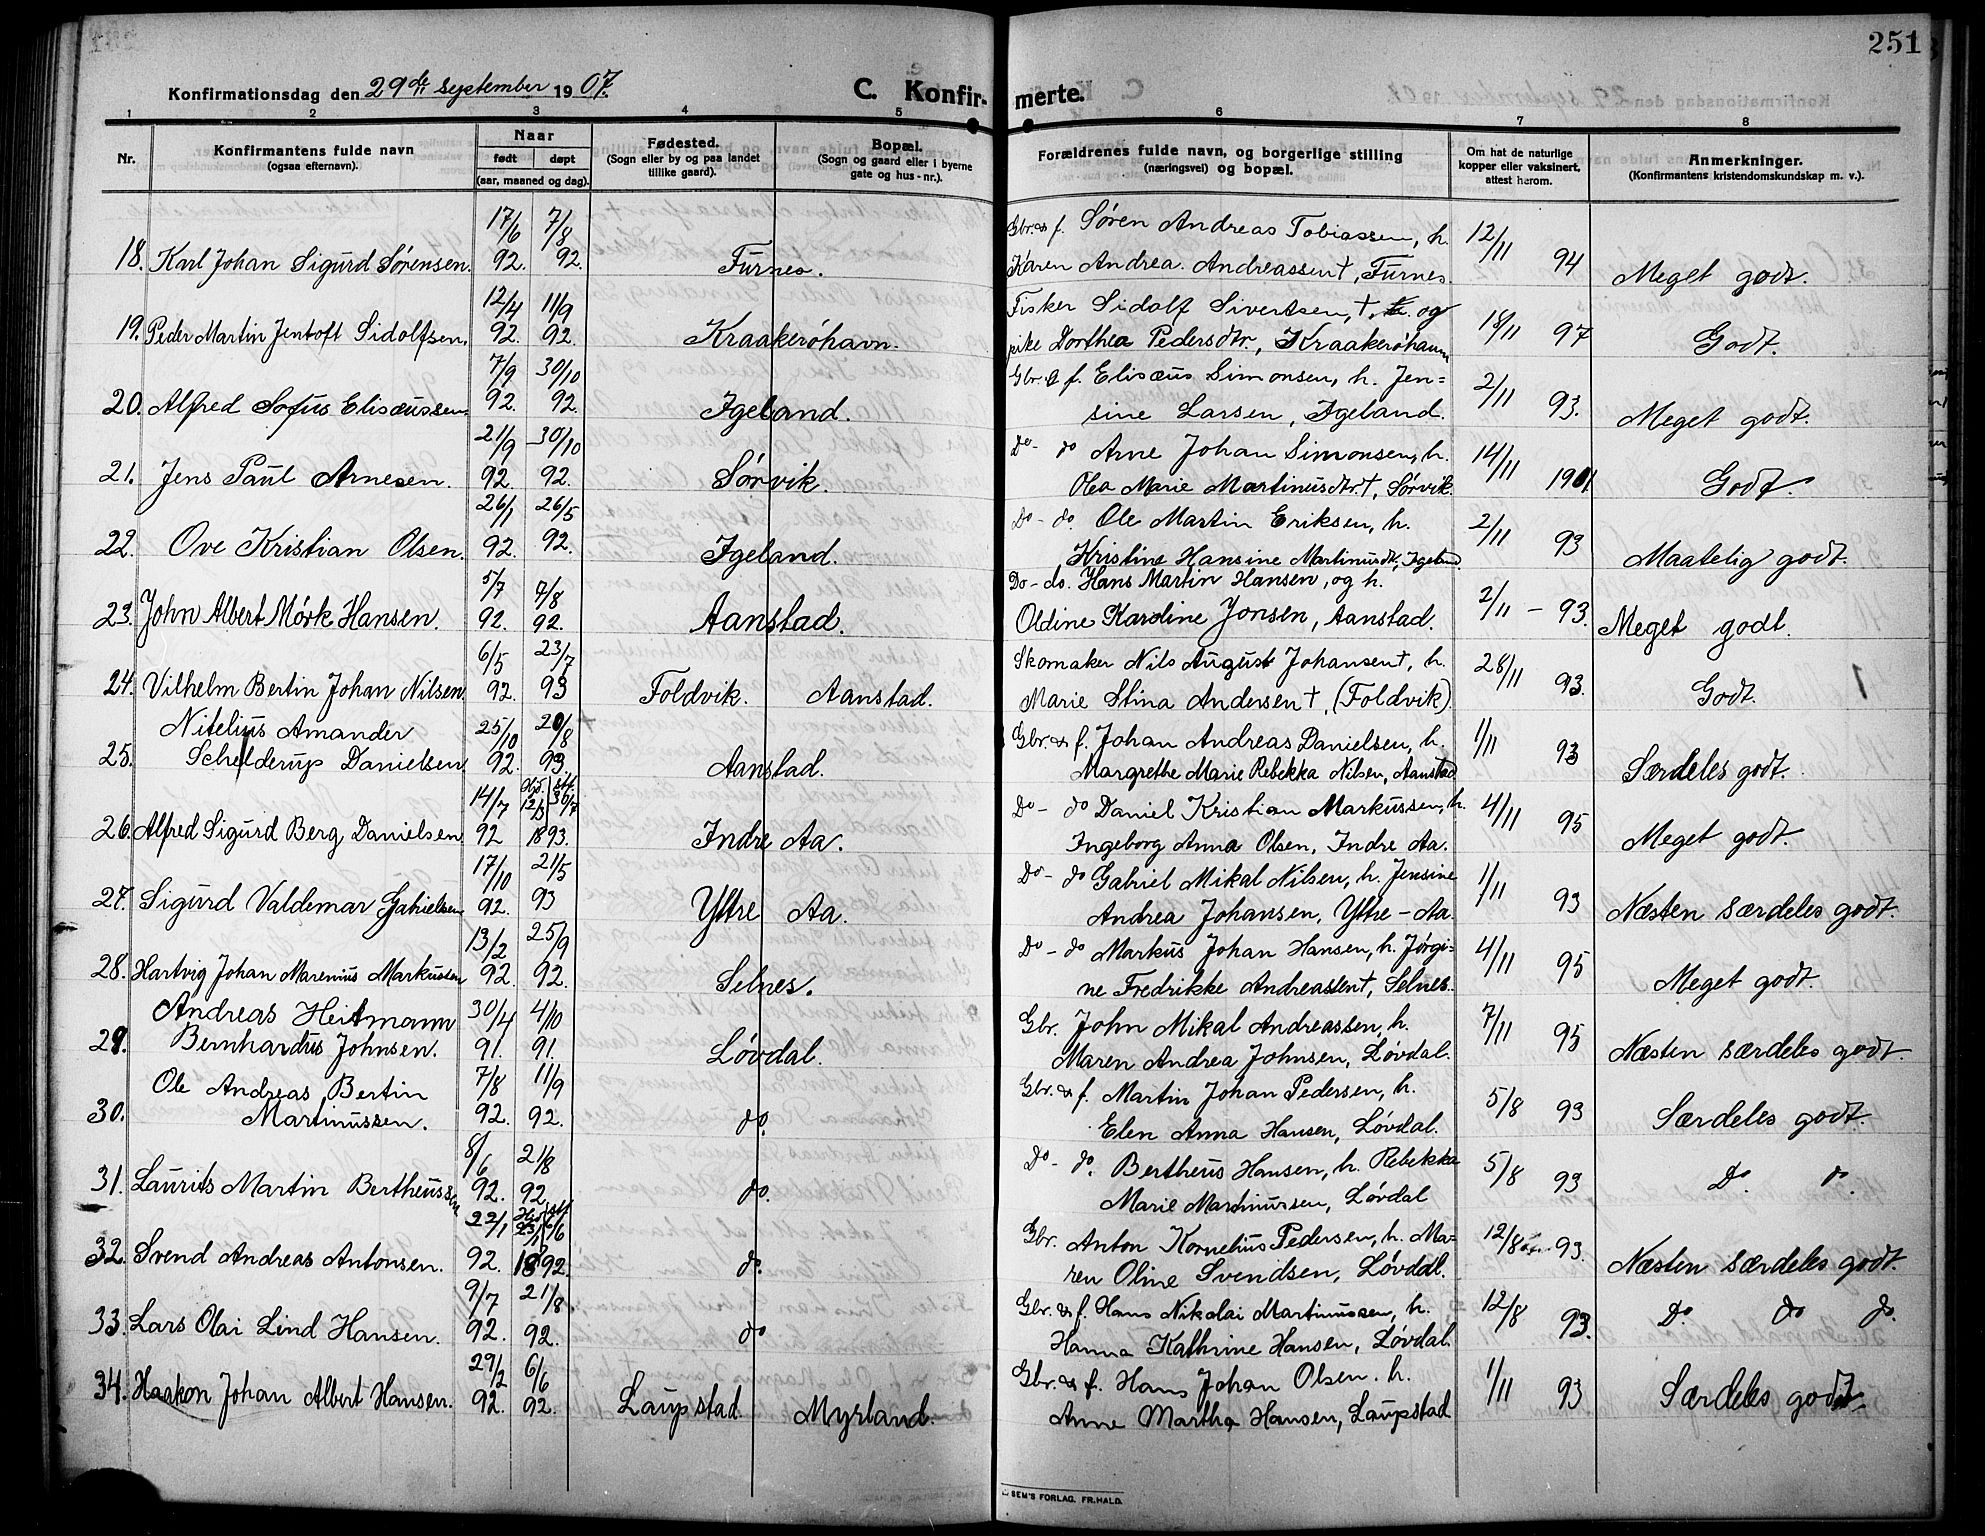 251
Konfirmationsdag den 29de september 1907.
C. Konfirmerte.
1 2 3 4 5 6 7 8
Nr.
Konfirmantens fulde navn
(ogsaa efternavn).
Naar
født døpt
(aar, maaned og dag).
Fødested.
(Sogn eller by og paa landet
tillike gaard).
Bopæl.
(Sogn og gaard eller i byerne
gate og hus-nr.).
Forældrenes fulde navn, og borgerlige stilling
(næringsvei) og bopæl.
Om hat de naturlige
kopper eller vaksinert,
attest herom.
Anmerkninger.
(Konfirmantens kristendomskundskap m. v.).
17/6 7/8 Gbr. & f. Søren Andreas Tobiassen, h. 12/11
18. Karl Johan Sigurd Sørensen. 92. 92. Furnes. Karen Andrea Andreassen †, Furnes. 94 Meget godt.
12/4 11/9 Fisker Sidolf Sivertsen, †, og
19. Peder Martin Jentoft Sidolfsen. 92. 92. Kraakerøhavn. pike Dorthea Pedersdtr., Kraakerøhavn 18/11 97 Godt.
7/9 30/10 Gbr. & f. Elisæus Simonsen, h. Jen=
20. Alfred Sofus Elisæussen. 92. 92. Igeland. sine Larsen, Igeland. 2/11 93. Meget godt.
21/9 30/10 Do - do Arne Johan Simonsen, h. 14/11
21. Jens Paul Arnesen. 92. 92. Sørvik. Olea Marie Martinusdtr. †, Sørvik. 1901. Godt.
26/1 26/5 Do - do. Ole Martin Eriksen, h. 2/11
22. Ove Kristian Olsen. 92. 92. Igeland. Kristine Hansine Martinusdt., Igeland. 93 Maatelig godt.
5/7 7/8 Do - do. Hans Martin Hansen, og h.
23. John Albert Mörk Hansen. 92. 92. Aanstad. Oldine Karoline Jonsen, Aanstad. 2/11 - 93. Meget godt.
6/5 23/7 Skomaker Nils August Johansen †, h. 28/11
24. Vilhelm Bertin Johan Nilsen. 92. 93 Foldvik. Aanstad. Marie Stina Andersen †, (Foldvik) 93. Godt. 1
Nitelius Amander 25/10 20/8 Gbr. & f. Johan Andreas Danielsen, h. 1/11
25. Schelderup Danielsen. 92. 93. Aanstad. Margrethe Marie Rebekka Nilsen, Aanstad 93 Særdeles godt.
14/7 12/3 30/7 Do - do Daniel Kristian Markussen, h. 4/11
26. Alfred Sigurd Berg Danielsen 92 1893. Indre Aa. Ingeborg Anna Olsen, Indre Aa. 95 Meget godt.
17/10 21/5 Do - do Gabriel Mikal Nilsen, h. Jensine 1/11
27. Sigurd Valdemar Gabrielsen 92. 93 Yttre Aa. Andrea Johansen, Yttre-Aa. 93 Næsten særdeles godt.
13/2 25/9 Do - do Markus Johan Hansen, h. Jørgi= 4/11
28. Hartvig Johan Marenius Markussen 92. 92. Selnes. ne Fredrikke Andreassen †, Selnes. 95 Meget godt.
Andreas Heitmann 30/4 4/10 Gbr. John Mikal Andreassen, h. 7/11
29. Bernhardus Johnsen. 91. 91. Løvdal. Maren Andrea Johnsen, Løvdal. 95 Næsten særdeles godt
Ole Andreas Bertin 7/8 11/9 Gbr. & f. Martin Johan Pedersen, h. 5/8
30. Martinussen. 92. 92. do. Elen Anna Hansen, Løvdal. 93 Særdeles godt.
8/6 21/8 Do - do. Bertheus Hansen, h. Rebekka 5/8
31. Laurits Martin Bertheussen 92. 92. do. Marie Martinussen, Løvdal 93 Do. do.
22/1 23/1 6/6 Gbr. Anton Kornelius Pedersen, h. Ma= 12/8
32. Svend Andreas Antonsen. 92. 1892. do. ren Oline Svendsen, Løvdal. 93. Næsten særdeles godt.
9/7 21/8 Gbr. & f. Hans Nikolai Martinussen, h. 12/8
33. Lars Olai Lind Hansen. 92. 92. do Hanna Kathrine Hansen, Løvdal. 93. Do. do do.
29/2 6/6 Gbr. & f. Hans Johan Olsen. h. 1/11
34. Haakon Johan Albert Hansen. 92. 92. Laupstad. Myrland. Anne Martha Hansen, Laupstad 93 Særdeles godt
SEM'S FORLAG. FR.HALD.